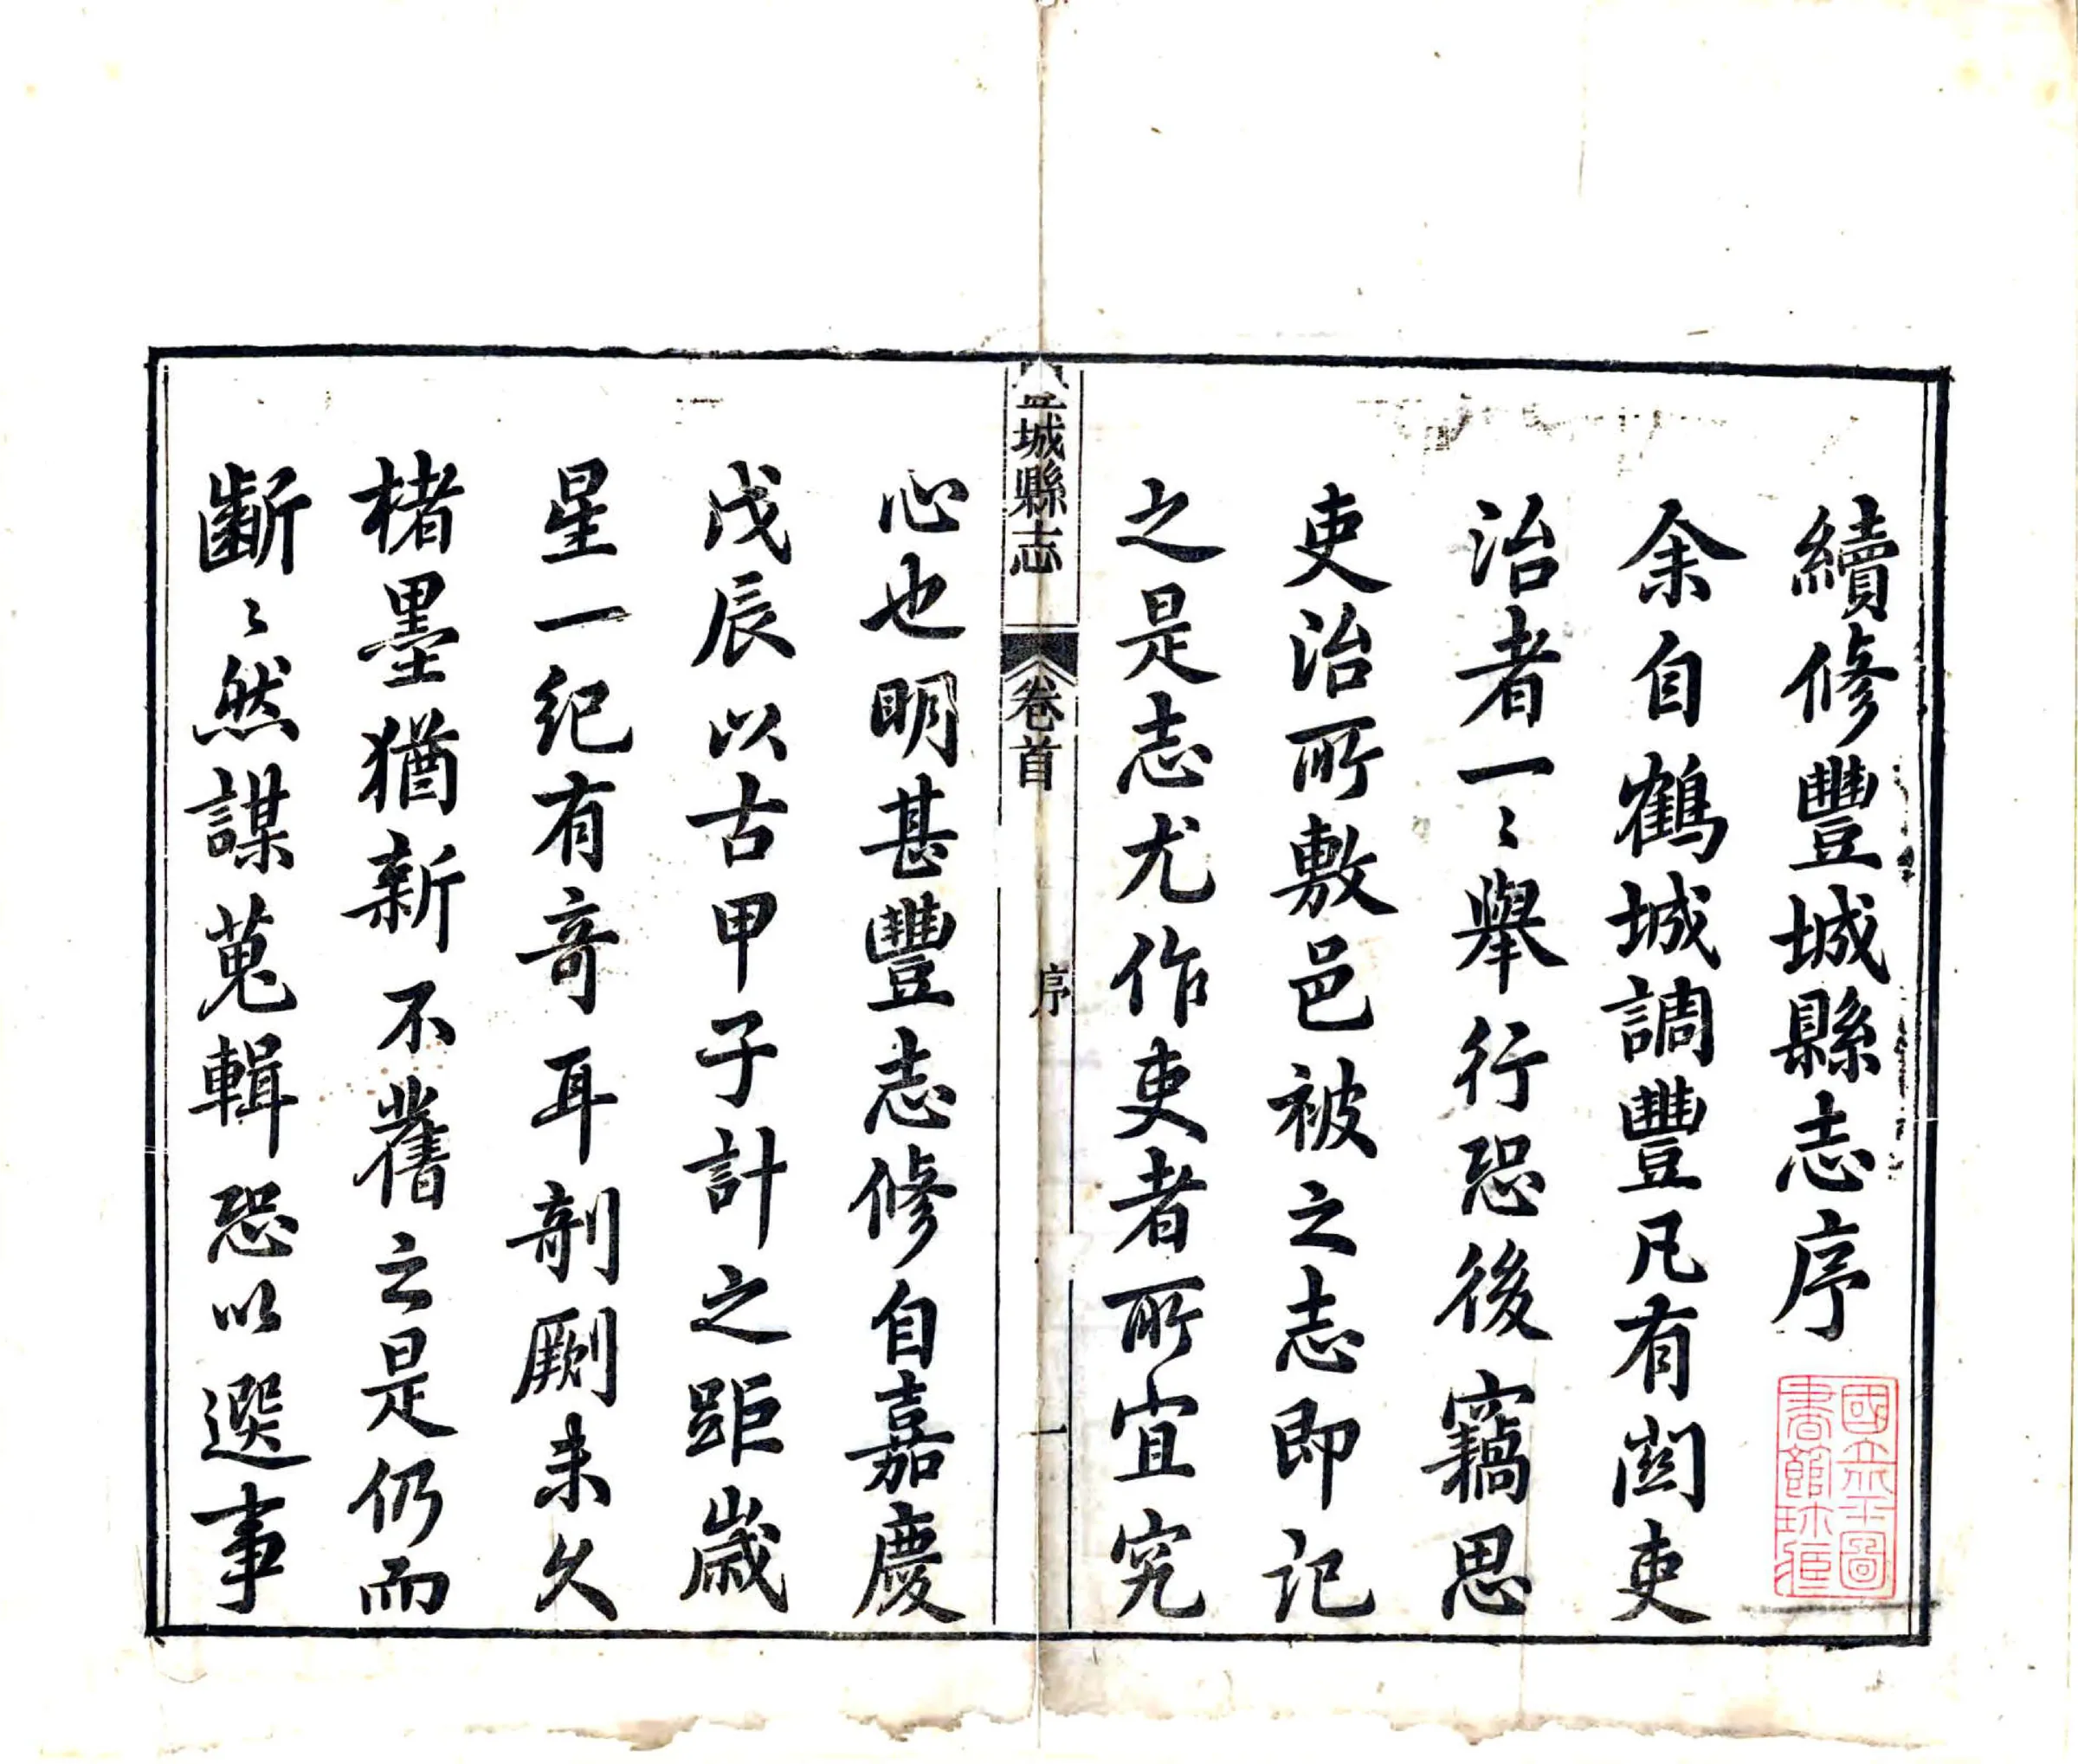 續修豐城縣志序
余自鶴城調豐凡有關吏
治者一〻舉行恐後竊思
吏治所敷邑被之志即記
之是志尤作吏者所宜究
豐城縣志 卷首 序 一
心也明甚豐志修自嘉慶
戊辰以古甲子計之距歲
星一紀有奇耳剞劂未久
楮墨猶新不舊之是仍而
斷〻然謀蒐輯恐以選事
國立北平圖
書館珍藏